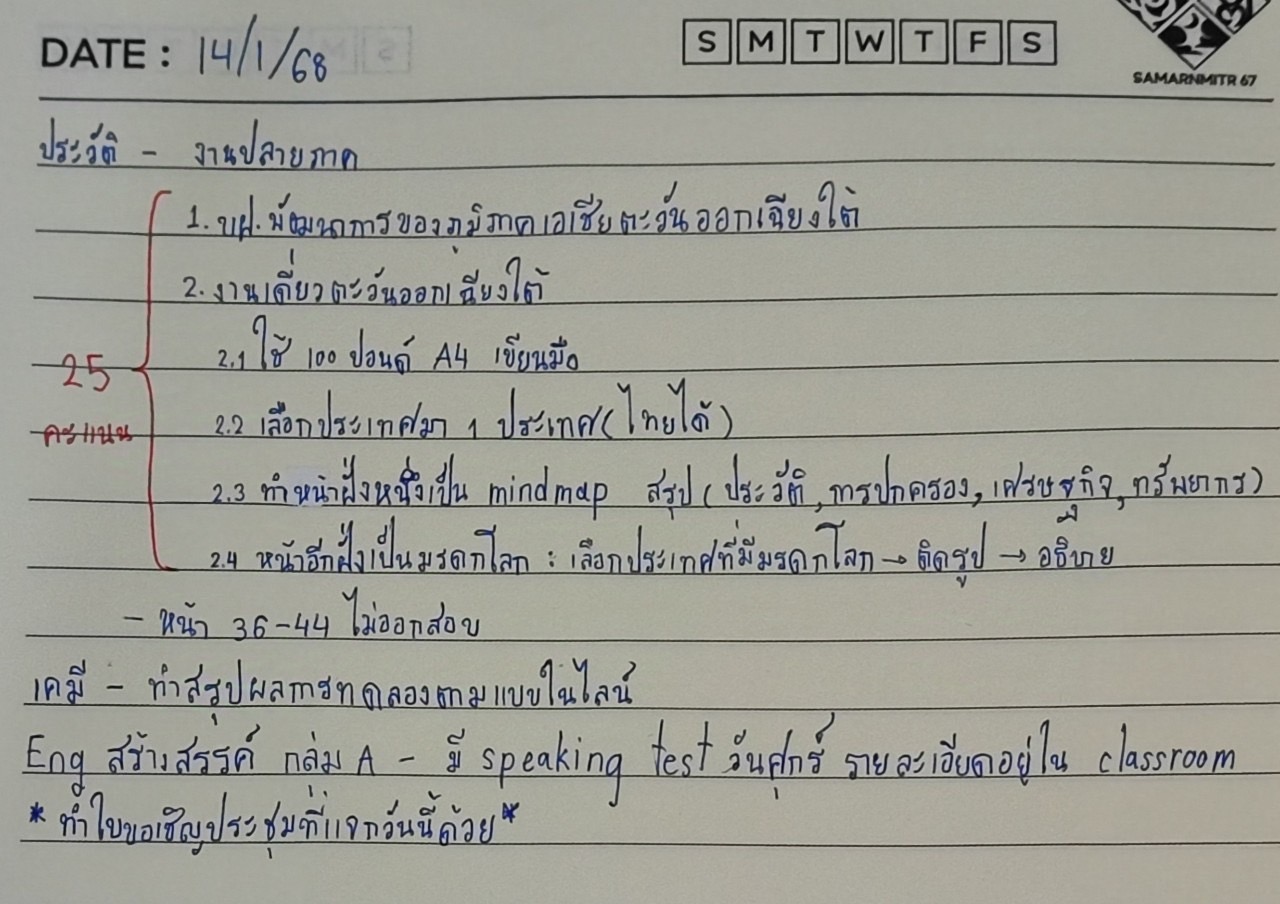 DATE : 14/1/68
S M T W T F S
SAMARNMITR 67
ประวัติ - งานปลายภาค
1. บฝ. พัฒนาการของภูมิภาคเอเชียตะวันออกเฉียงใต้
2. งานเดี่ยวตะวันออกเฉียงใต้
2.1 ใช้ 100 ปอนด์ A4 เขียนมือ
25
คะแนน
2.2 เลือกประเทศมา 1 ประเทศ (ไทยได้)
2.3 ทำหน้าฝั่งหนึ่งเป็น mindmap สรุป (ประวัติ, การปกครอง, เศรษฐกิจ, ทรัพยากร)
2.4 หน้าอีกฝั่งเป็นมรดกโลก : เลือกประเทศที่มีมรดกโลก → ติดรูป → อธิบาย
- หน้า 36-44 ไม่ออกสอบ
เคมี - ทำสรุปผลการทดลองตามแบบในไลน์
Eng สร้างสรรค์ กลุ่ม A - มี speaking test วันศุกร์ รายละเอียดอยู่ใน classroom
* ทำใบขอเชิญประชุมที่แจกวันนี้ด้วย *